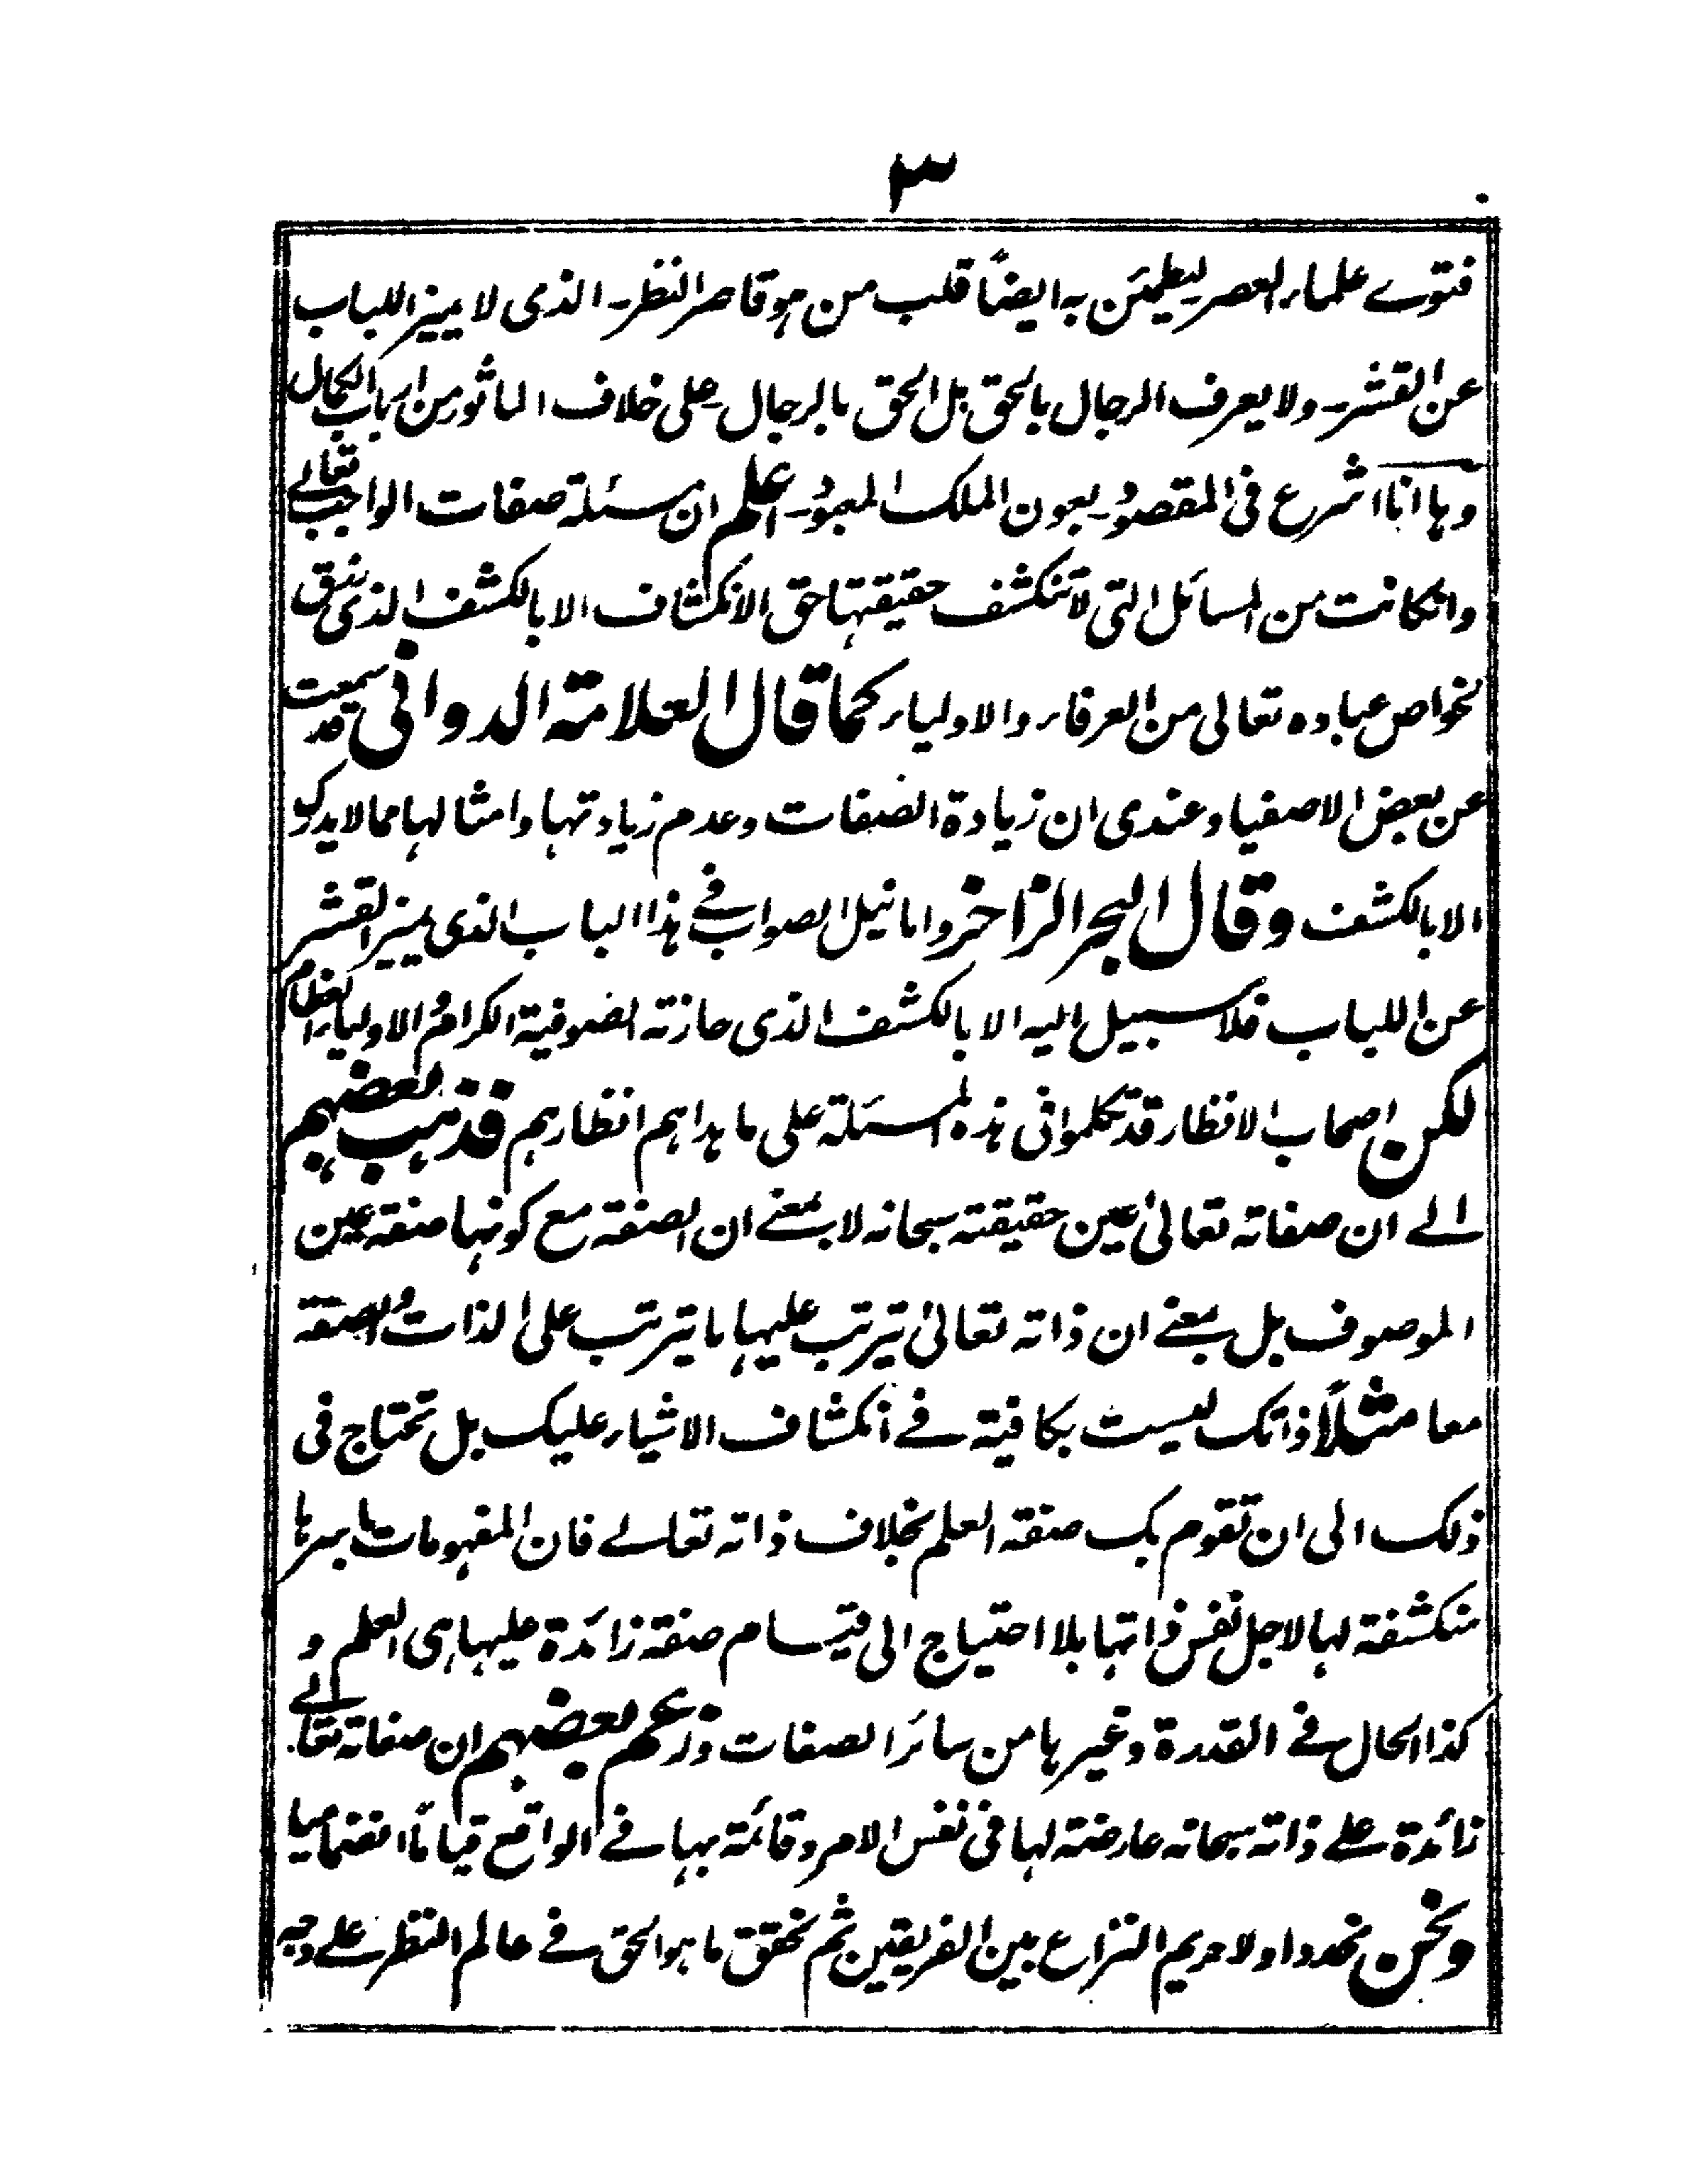 ٣
فتوے علماء العصر ليطمئن به ايضًا قلب من هو قاصر النظر۔ الذى لا يميز اللباب
عن القشر۔ ولا يعرف الرجال بالحق بل الحق بالرجال۔ على خلاف الماثور من ارباب الكمال
وها انا اشرع فى المقصود۔ بعون الملك المعبود۔ اعلم ان مسئلة صفات الواجب تعالے
وانكانت من المسائل التى لا تنكشف حقيقتها حق الانكشاف الا بالكشف الذى
بخواص عباده تعالى من العرفاء والاولياء كما قال العلامة الدوانى قد سمعت
عن بعض الاصفيا وعندى ان زيادة الصفات وعدم زيادتها وامثالها مما لا يدرك
الا بالكشف وقال البحر الزاخر واما نيل الصواب فے هذا الباب الذى يميز القشر
عن اللباب فلا سبيل اليه الا بالكشف الذى حازته الصوفية الكرام والاولياء العظام
لكن اصحاب الانظار قد تكلموا فى هذه المسئلة على ما هداهم انظارهم فذهب بعضهم
الے ان صفاته تعالىٰ عين حقيقته سبحانه لا بمعنے ان الصفة مع كونها صفة عين
الموصوف بل بمعنے ان ذاته تعالىٰ يترتب عليها ما يترتب على الذات والصفة
معا مثلًا ذاتك ليست بكافية فے انكشاف الاشياء عليك بل تحتاج فى
ذلك الى ان تقوم بك صفة العلم بخلاف ذاته تعالے فان المفهومات باسرها
منكشفة لها لاجل نفس ذاتها بلا احتياج الى قيام صفة زائدة عليها هى العلم و
كذا الحال فے القدرة وغيرها من سائر الصفات وزعم بعضهم ان صفاته تعالے
زائدة علے ذاته سبحانه عارضة لها فى نفس الامر وقائمة بها فے الواقع قيامًا انضماميا
ونحن نحدد اولا حريم النزاع بين الفريقين ثم نحقق ما هو الحق فے عالم النظر علے وجه